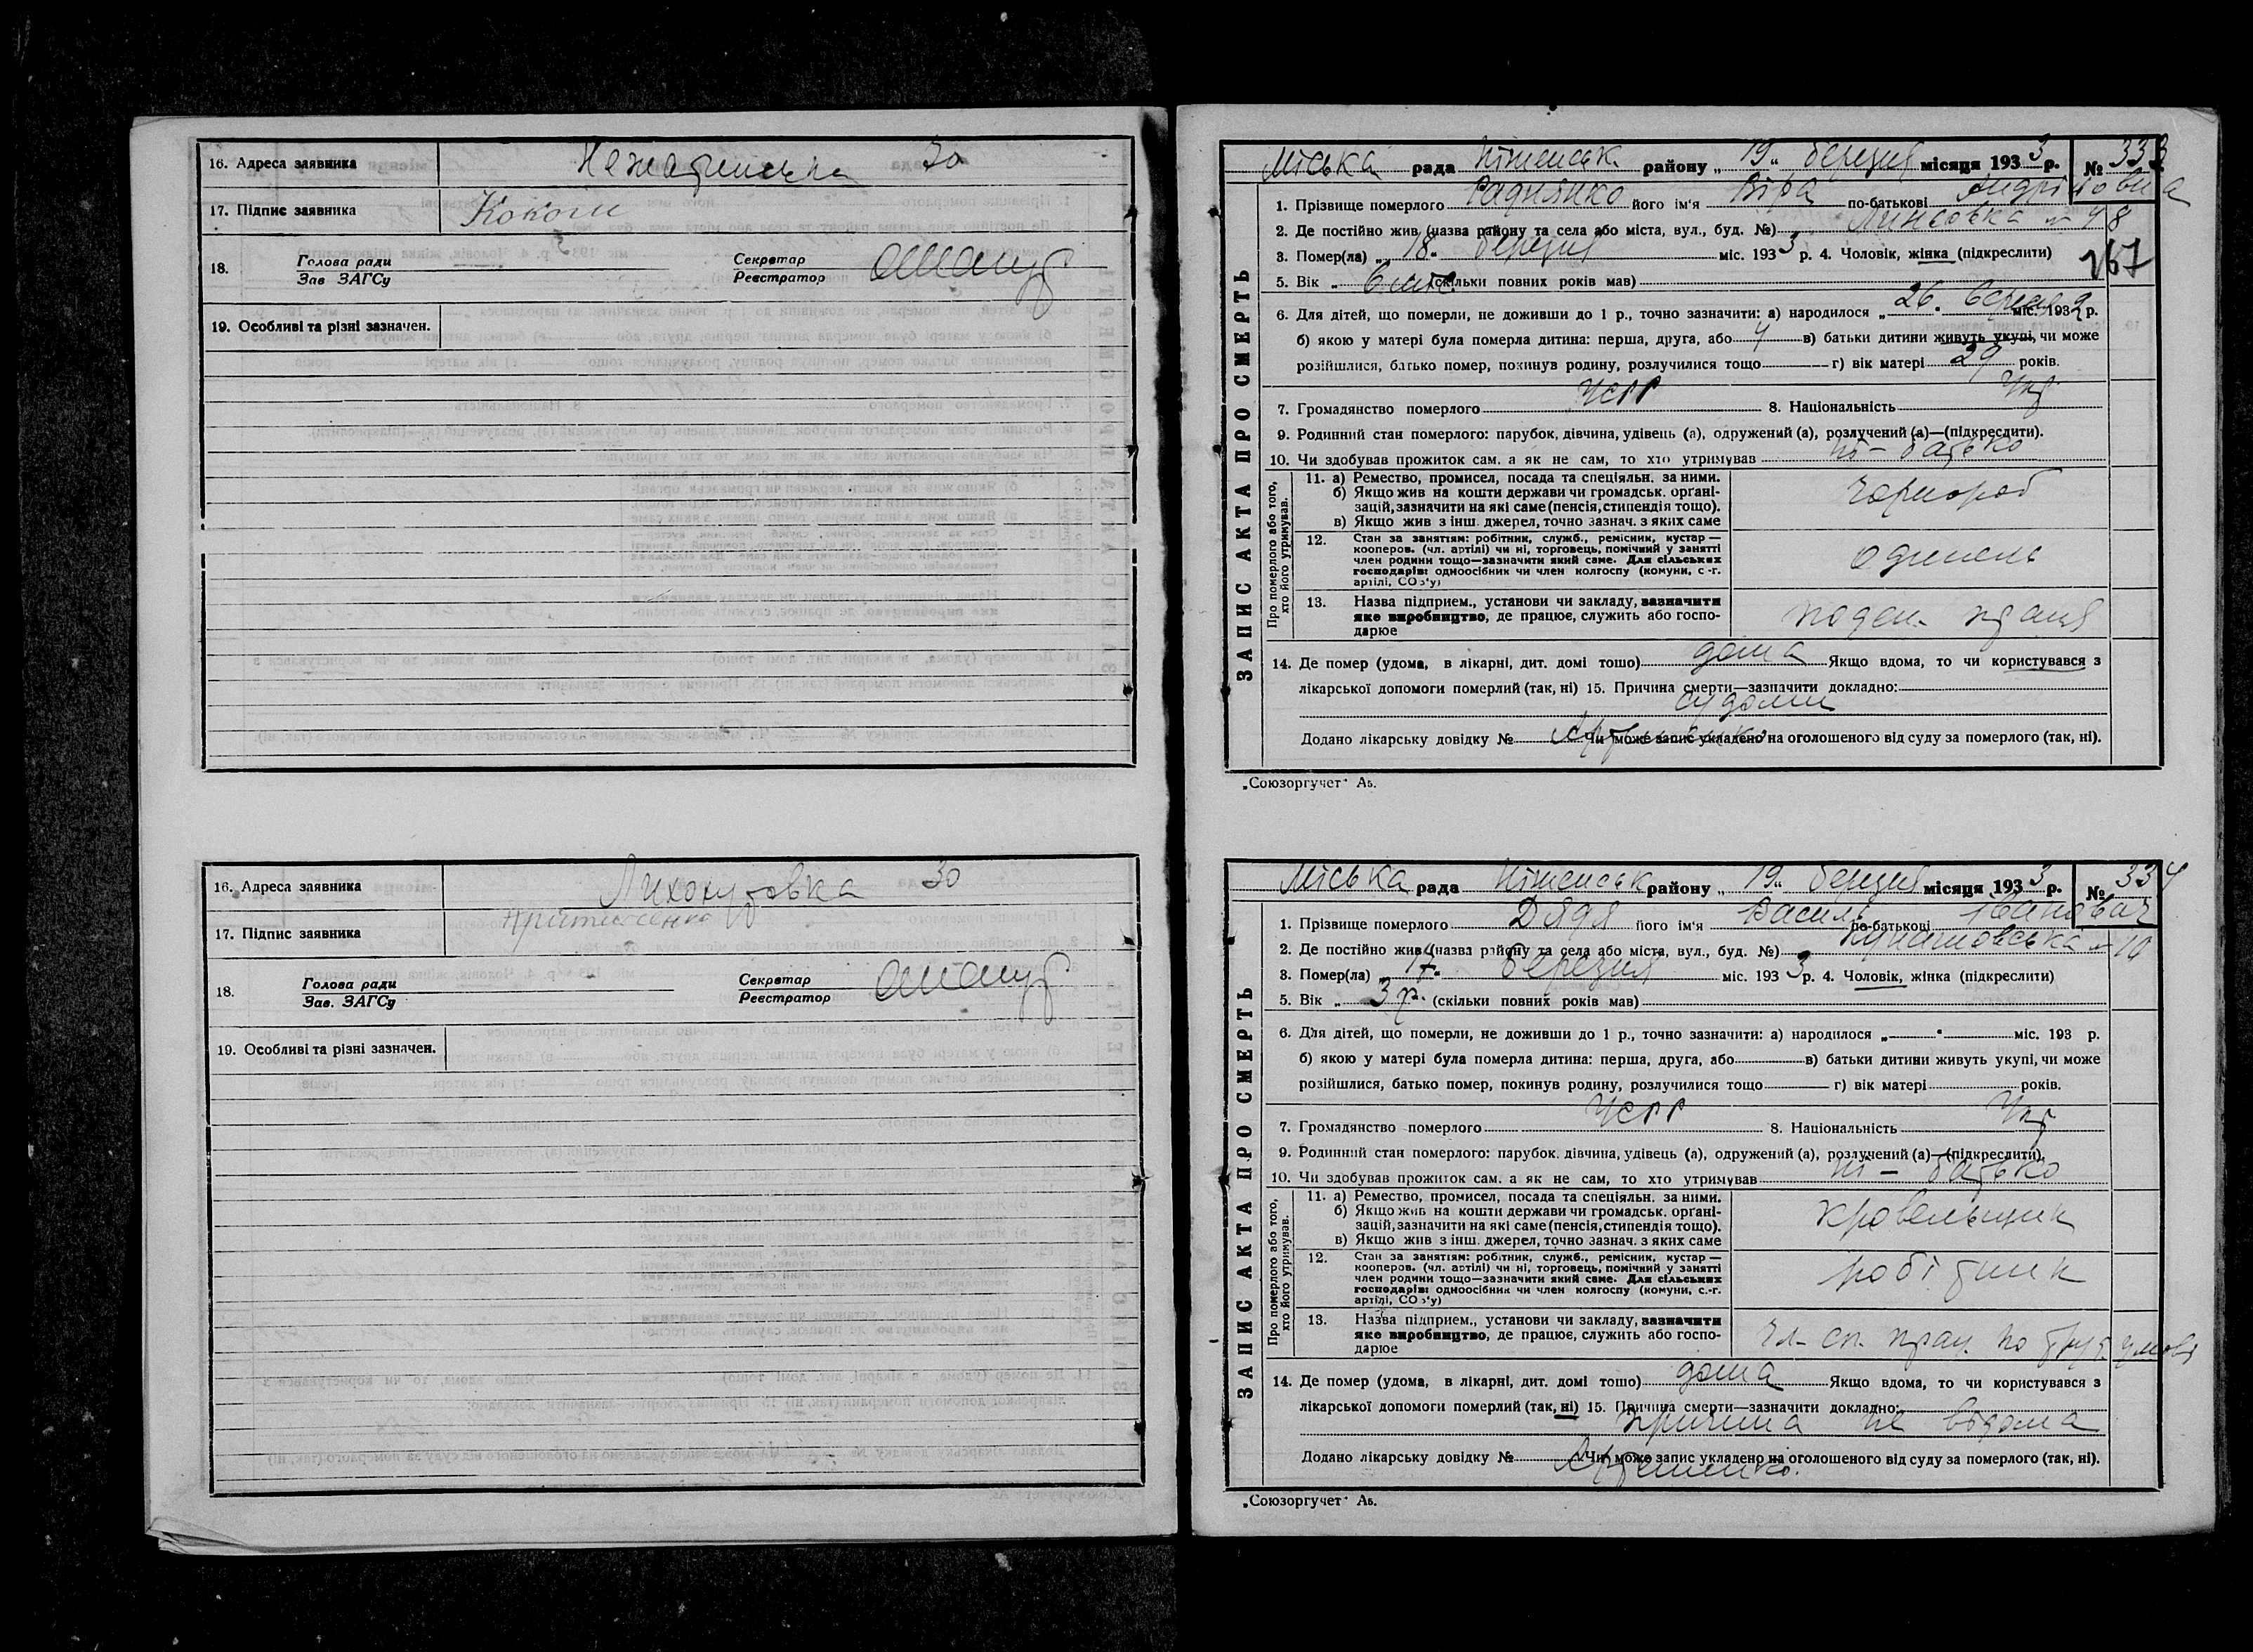 16. Адреса заявника 30
17. Підпис заявника
18. Голова ради Секретар
Зав ЗАГСу Реєстратор
19. Особливі та різні зазначен.
16. Адреса заявника 30
17. Підпис заявника
18. Голова ради Секретар
Зав. ЗАГСу Реєстратор
19. Особливі та різні зазначен.
ЗАПИС АКТА ПРО СМЕРТЬ
Міська рада Ніженськ. району „19“ березня місяця 1933 р. № 333
1. Прізвище померлого його ім'я Віра по-батькові
2. Де постійно жив (назва району та села або міста, вул., буд. №)
3. Помер(ла) „18“ березня міс. 1933 р. 4. Чоловік, жінка (підкреслити)
167
5. Вік „ 6 міс. (скільки повних років мав)
6. Для дітей, що померли, не доживши до 1 р., точно зазначити: а) народилося „26. міс. 1932 р.
б) якою у матері була померла дитина: перша, друга, або 4 в) батьки дитини живуть укупі, чи може
розійшлися, батько помер, покинув родину, розлучилися тощо г) вік матері 29 років.
7. Громадянство померлого УСРР 8. Національність Укр
9. Родинний стан померлого: парубок, дівчина, удівець (а), одружений (а), розлучений (а)—(підкреслити).
10. Чи здобував прожиток сам, а як не сам, то хто утримував ні – батько
Про померлого або того, хто його утримував.
11. а) Ремество, промисел, посада та спеціяльн. за ними.
б) Якщо жив на кошти держави чи громадськ. орґані-
зацій, зазначити на які саме (пенсія, стипендія тощо).
в) Якщо жив з інш. джерел, точно зазнач. з яких саме
чорнороб
12. Стан за заняттям: робітник, служб., ремісник, кустар—
кооперов. (чл. артілі) чи ні, торговець, помічний у занятті
член родини тощо—зазначити який саме. Для сільських
господарів: одноосібник чи член колгоспу (комуни, с.-г.
артілі, СОЗ'у)
13. Назва підприєм., установи чи закладу, зазначити
яке виробництво, де працює, служить або госпо-
дарює
поден. праця
14. Де помер (удома, в лікарні, дит. домі тощо) дома Якщо вдома, то чи користувався з
лікарської допомоги померлий (так, ні) 15. Причина смерти—зазначити докладно:
судоми
Додано лікарську довідку № Чи може запис укладено на оголошеного від суду за померлого (так, ні).
„Союзоргучет“ Аз.
ЗАПИС АКТА ПРО СМЕРТЬ
Міська рада Ніженськ району „19“ березня місяця 1933 р. № 334
1. Прізвище померлого Дядя його ім'я Василь по-батькові Іванович
2. Де постійно жив (назва району та села або міста, вул., буд. №)
3. Помер(ла) „17“ березня міс. 1933 р. 4. Чоловік, жінка (підкреслити)
5. Вік „ 3 р. (скільки повних років мав)
6. Для дітей, що померли, не доживши до 1 р., точно зазначити: а) народилося „ “ міс. 193 р.
б) якою у матері була померла дитина: перша, друга, або в) батьки дитини живуть укупі, чи може
розійшлися, батько помер, покинув родину, розлучилися тощо г) вік матері років.
7. Громадянство померлого УСРР 8. Національність Укр
9. Родинний стан померлого: парубок, дівчина, удівець (а), одружений (а), розлучений (а)—(підкреслити).
10. Чи здобував прожиток сам, а як не сам, то хто утримував ні – батько
Про померлого або того, хто його утримував.
11. а) Ремество, промисел, посада та спеціяльн. за ними.
б) Якщо жив на кошти держави чи громадськ. орґані-
зацій, зазначити на які саме (пенсія, стипендія тощо).
в) Якщо жив з інш. джерел, точно зазнач. з яких саме
кровельщик
12. Стан за заняттям: робітник, служб., ремісник, кустар—
кооперов. (чл. артілі) чи ні, торговець, помічний у занятті
член родини тощо—зазначити який саме. Для сільських
господарів: одноосібник чи член колгоспу (комуни, с.-г.
артілі, СОЗ'у)
робітник
13. Назва підприєм., установи чи закладу, зазначити
яке виробництво, де працює, служить або госпо-
дарює
чл. сп. прац. по труд умові
14. Де помер (удома, в лікарні, дит. домі тощо) дома Якщо вдома, то чи користувався з
лікарської допомоги померлий (так, ні) 15. Причина смерти—зазначити докладно:
причина не відома
Додано лікарську довідку № Чи може запис укладено на оголошеного від суду за померлого (так, ні).
„Союзоргучет“ Аз.